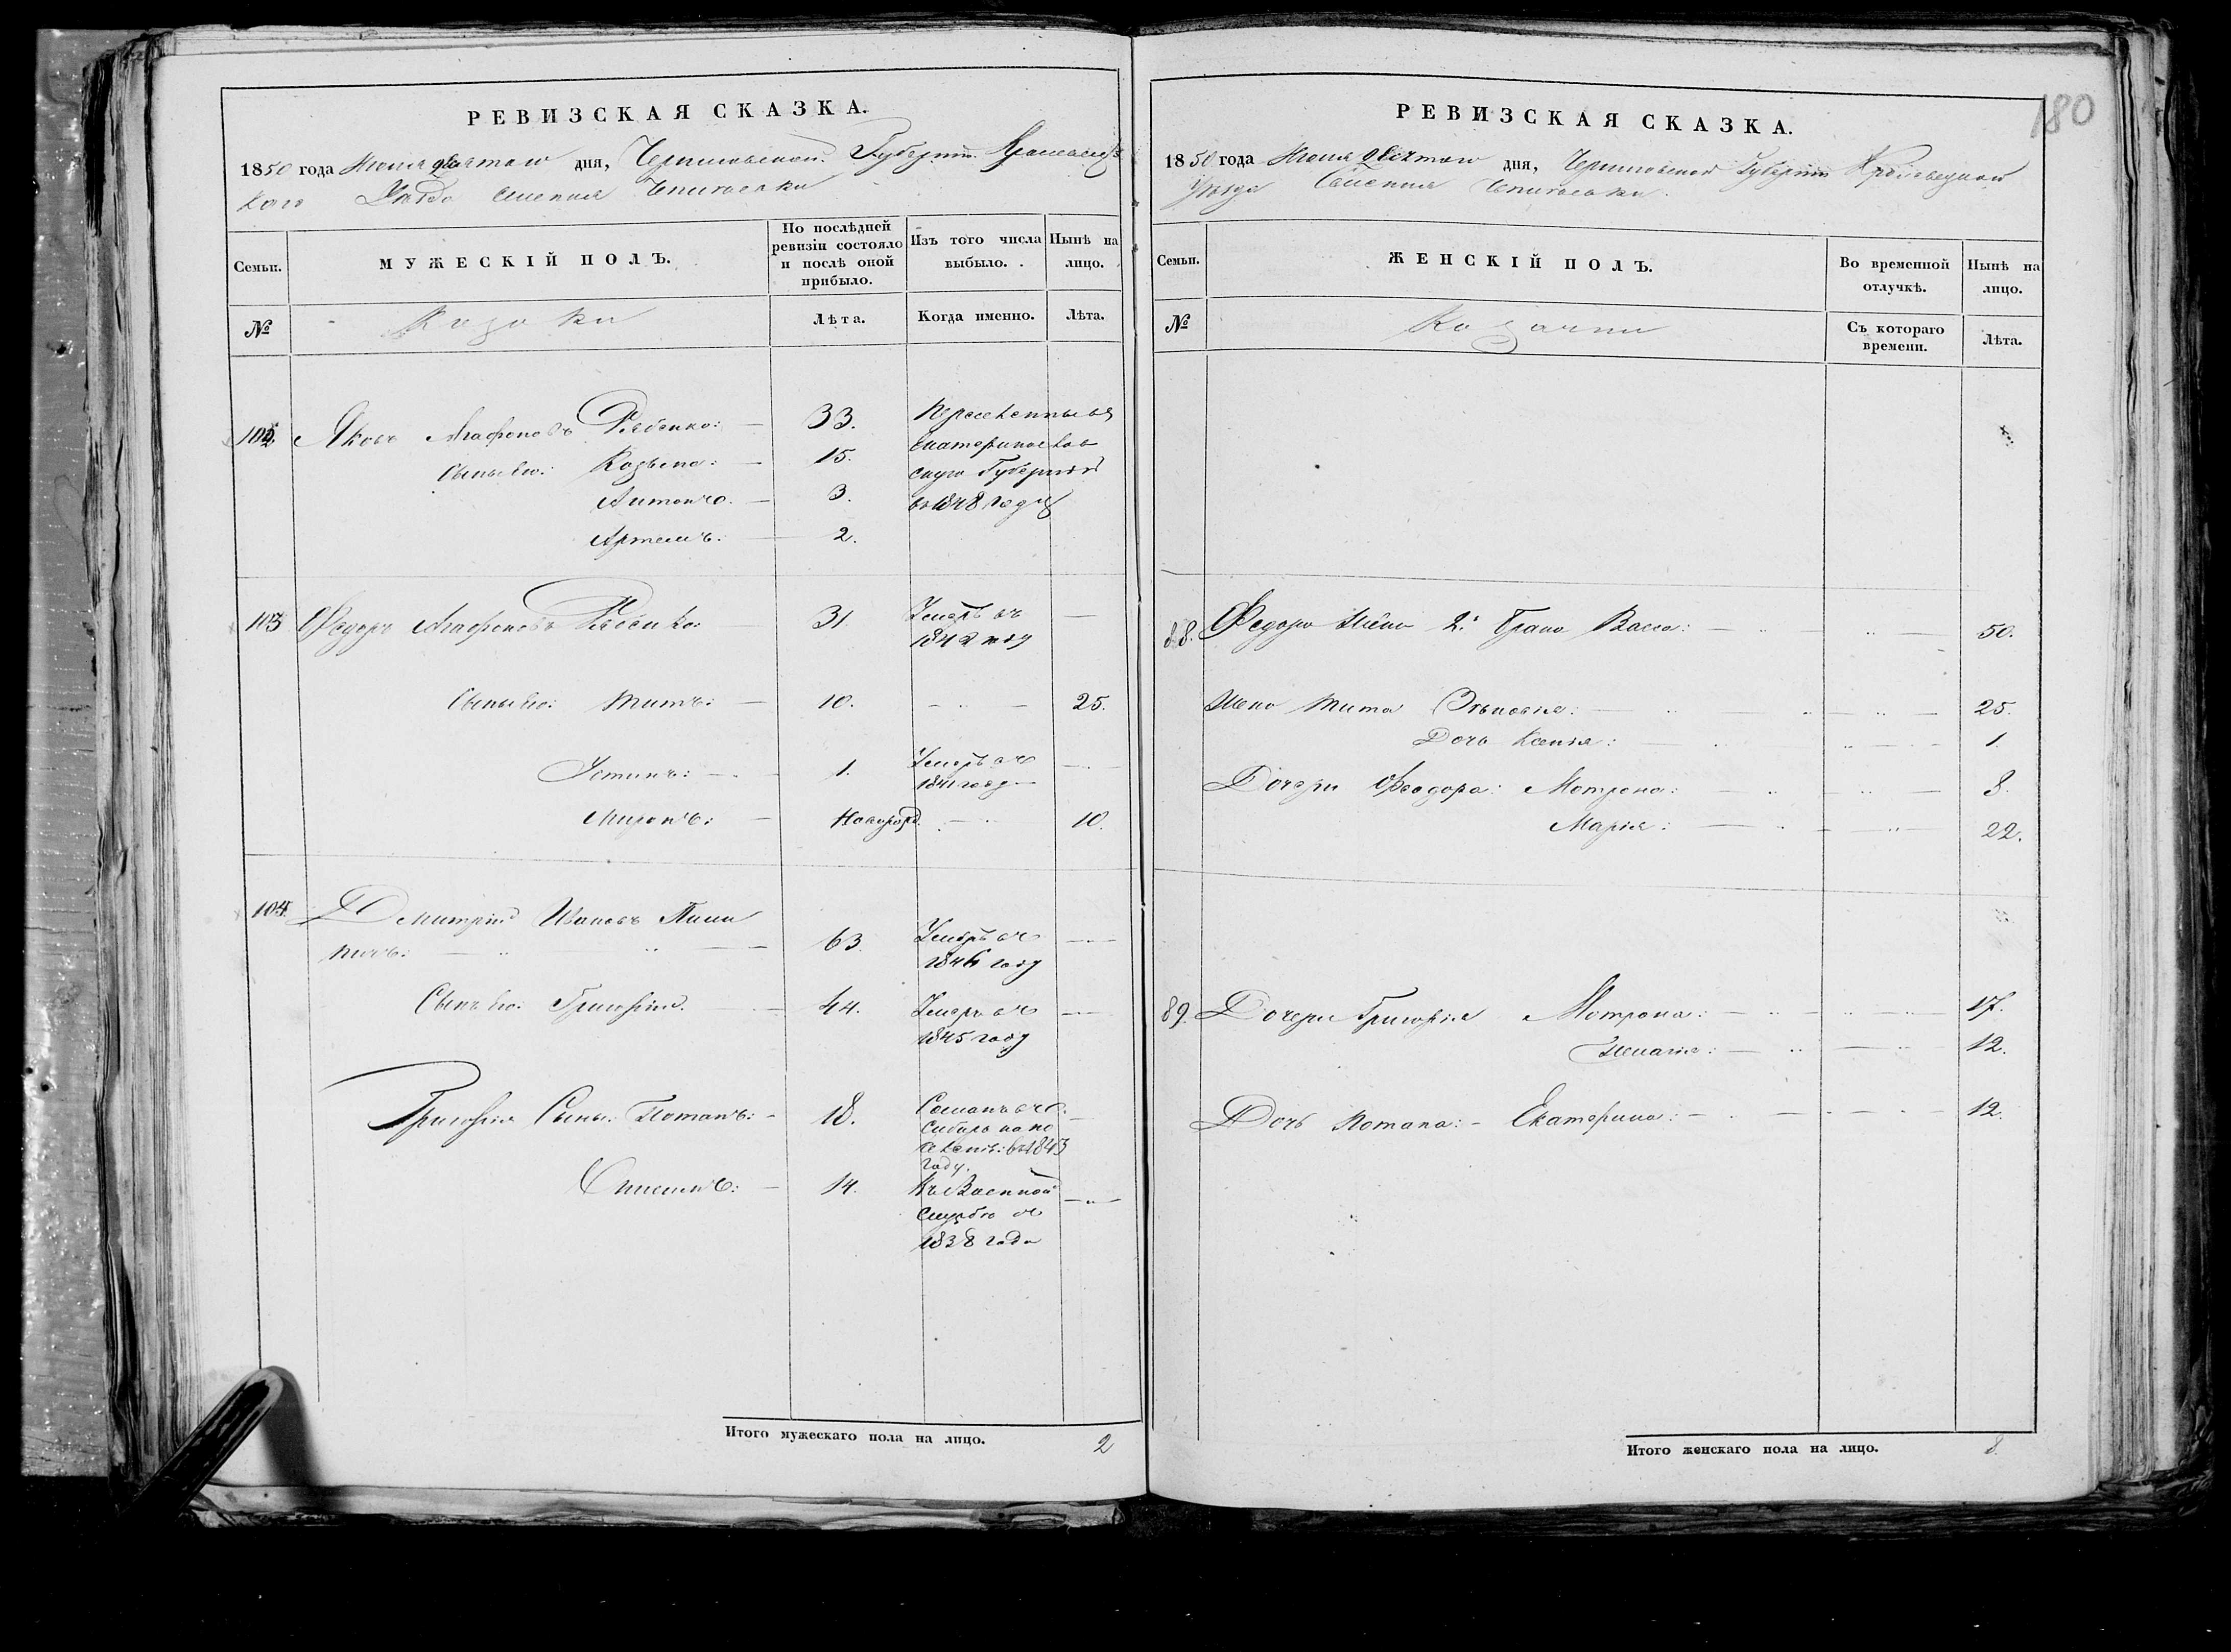 РЕВИЗСКАЯ СКАЗКА.
1850 года Июня девятого дня, Черниговской Губернии Кролевец
каго Уезда Селения
Семьи.
МУЖЕСКІЙ ПОЛЪ.
По послѣдней
ревизіи состояло
и послѣ оной
прибыло.
Изъ того числа
выбыло.
Нынѣ на
лицо.
№
Козаки
Лѣта.
Когда именно.
Лѣта.
102 Яковъ Агафоновъ Рябенко: 33. Переселенные въ
Екатеринослав
Сынъ его: Козьма: 15. скую Губернію
Антонъ. 3. въ 1848 году
Артемъ: 2.
103 Федоръ Агафоновъ Рябенко: 31 Умеръ въ
1842 году
Сынъ его: Титъ: 10. 25.
Устинъ: 1. Умеръ въ
1841 году
Миронъ: Новорожд. 10.
104 Дмитрій Ивановъ Пили
пичъ: 63. Умеръ въ
1846 году
Сынъ его: Григорій. 44. Умеръ въ
1845 году
Григорія Сыны: Потапъ: 18. Сосланъ въ
Сибирь на по
селеніе: въ 1843
году.
14. Къ Военной
Службѣ въ
1838 года
Итого мужескаго пола на лицо. 2
180
РЕВИЗСКАЯ СКАЗКА.
1850 года Июня девятого дня, Черниговской Губерніи Кролевецкой
Уезда Селения
Семьи.
ЖЕНСКІЙ ПОЛЪ.
Во временной
отлучкѣ.
Нынѣ на
лицо.
№
Козачки
Съ котораго
времени.
Лѣта.
88. Федора Жена 2. брака Васса: 50.
Жена Тита 25.
Дочь Ксенія: 1.
Дочери Феодора: Мотрона: 8.
Марія: 22.
89. Дочери Григорія Мотрона: 17.
12.
Дочь Потапа: Екатерина: 12.
Итого женскаго пола на лицо. 8.